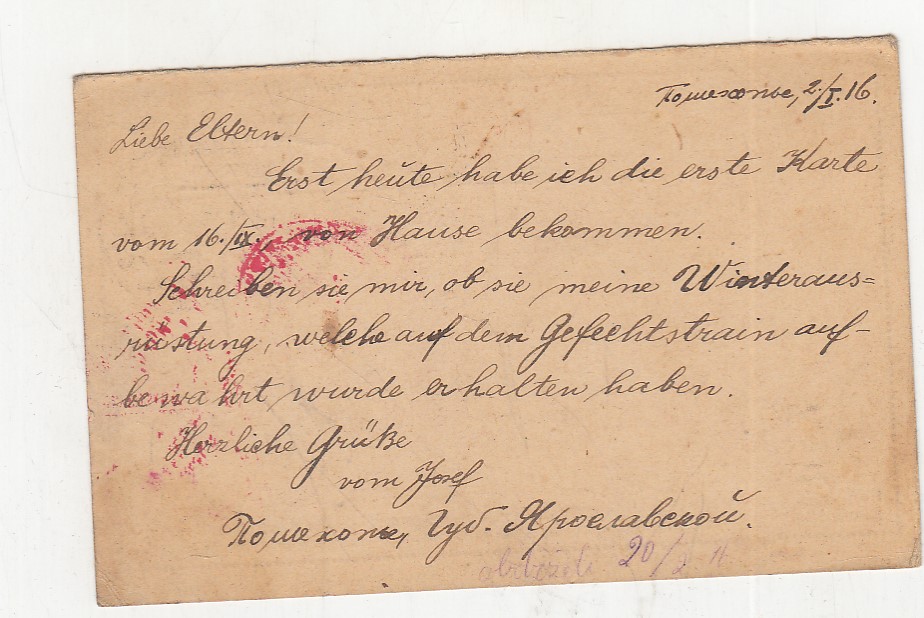 Пошехонье, 2./I.16.
Liebe Eltern!
Erst heute habe ich die erste Karte
vom 16./IX., von Hause bekommen.
Schreiben sie mir, ob sie meine Winteraus=
rüstung, welche auf dem Gefechtstrain auf-
bewahrt wurde erhalten haben.
Herzliche Grüße
vom Josef
Пошехонье, Губ. Ярославской.
20/2